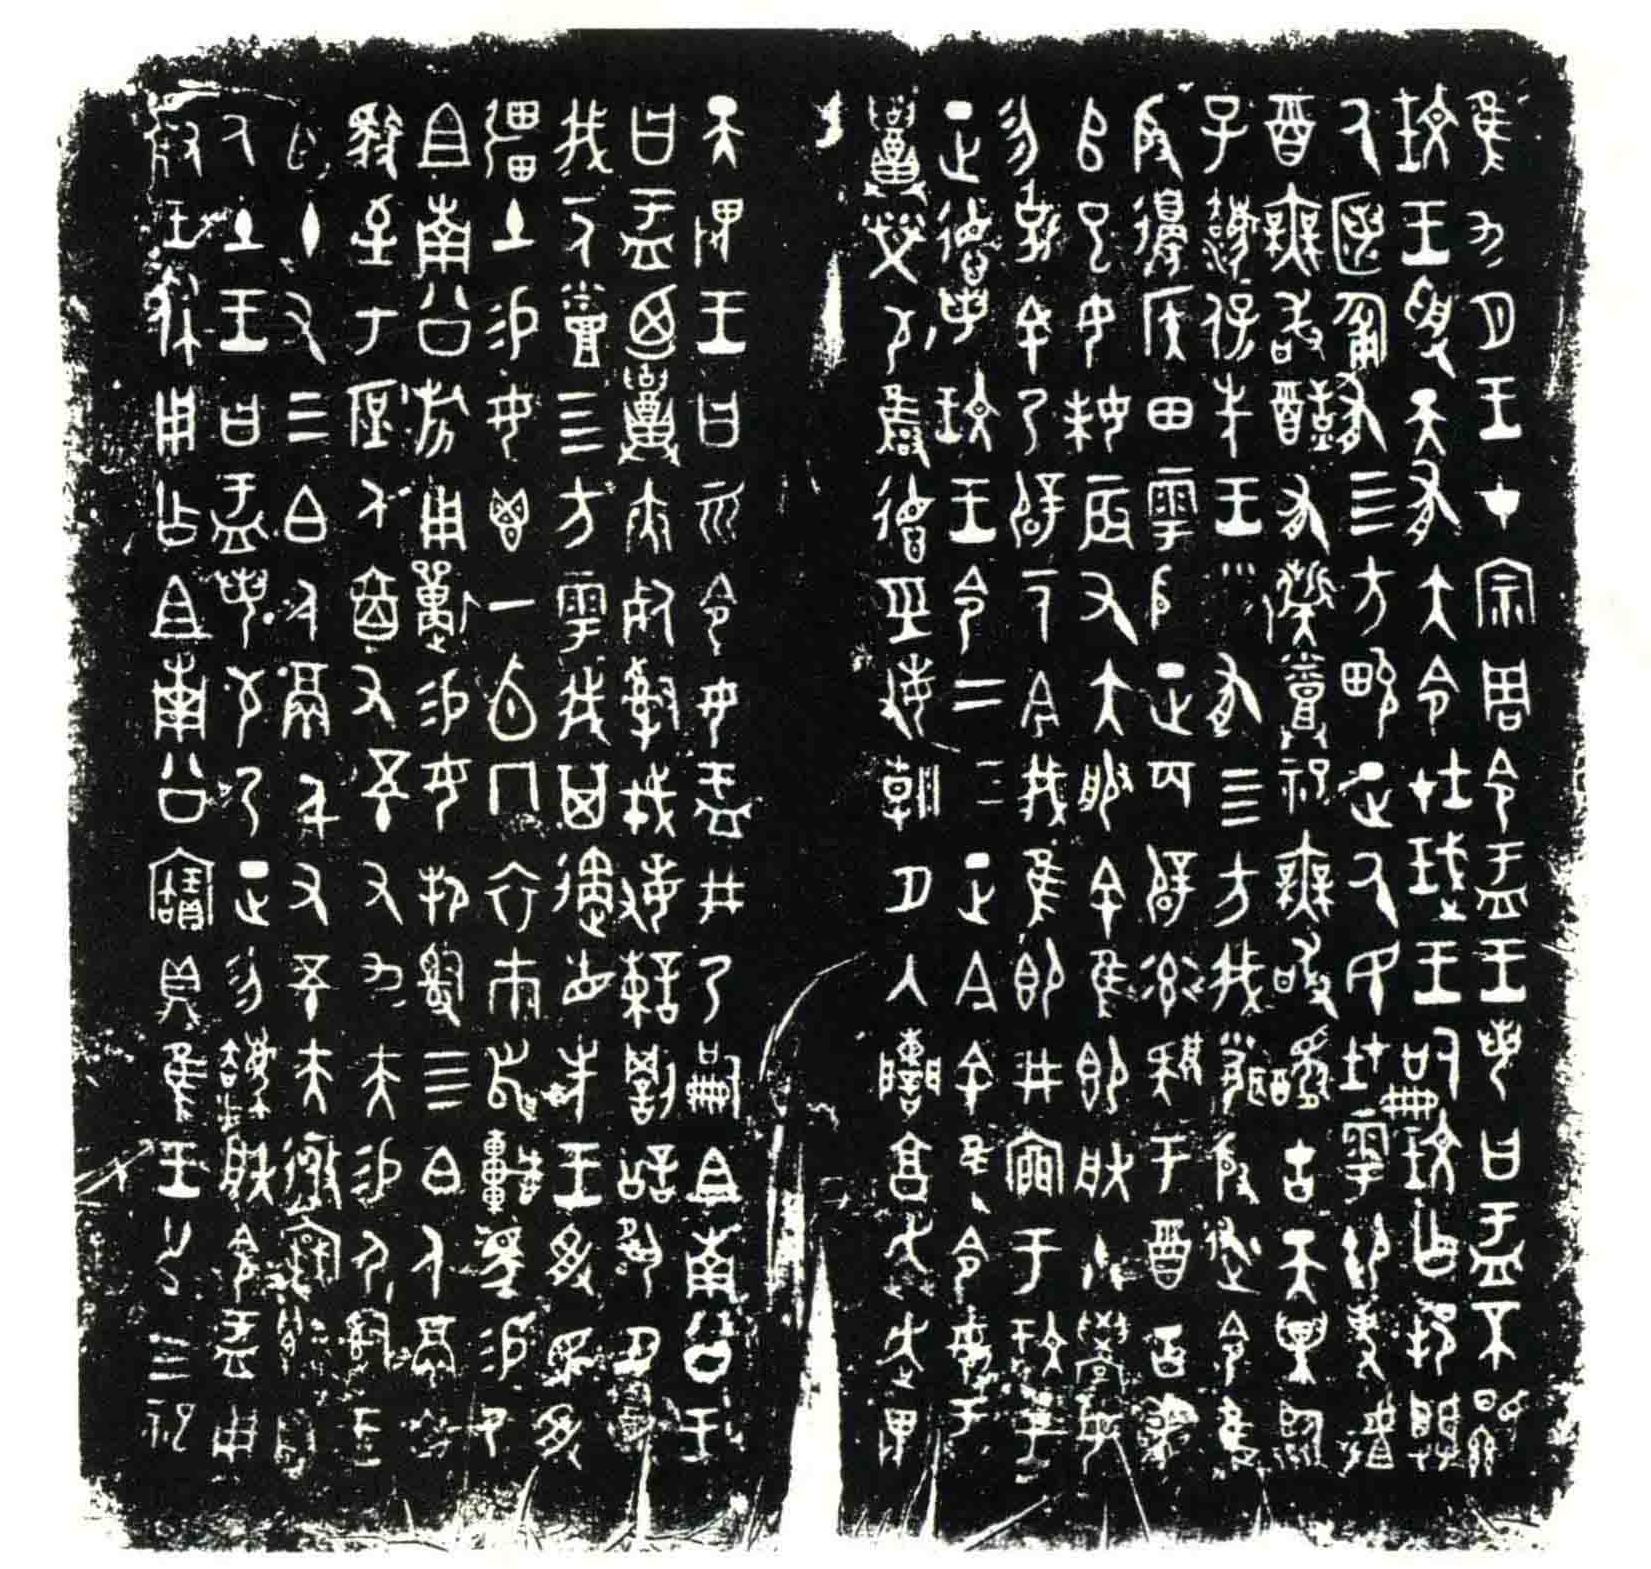 隹九月王才宗周令盂王若曰盂不顯
玟王受天有大令在珷王嗣玟乍邦闢
厥匿匍有四方畯正厥民在雩御事䖒
酉無敢酖有柴烝祀無敢醻古天異臨
子灋保先王有四方我聞殷述令隹
殷邊侯田雩殷正百辟率肄于酉古喪
𠂤已女妹辰又大服余隹即朕小學女
勿𠨘余乃辟一人今我隹即井㐭于玟王
正德若玟王令二三正今余隹令女盂
召榮敬雝德巠敏朝夕入讕享奔走畏
天畏王曰𠀠令女盂井乃嗣且南公王
曰盂迺召夾死司戎敏諫罰訟夙夕召
我一人烝四方雩我其遹省先王受民受
疆土易女鬯一卣冂衣巿舄車馬易乃
且南公旂用遱易女邦司四白人鬲自
馭至于庶人六百又五十又九夫易尸司王
臣十又三白人鬲千又五十夫遷自
厥土王曰盂若敬乃正勿灋朕令盂用
對王休用乍且南公寶鼎隹王廿又三祀